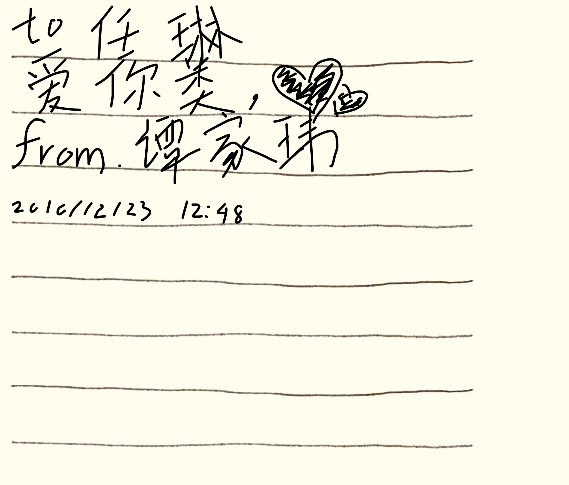 to 任琳
爱你类,
from. 谭家玮
2010/12/23 12:48